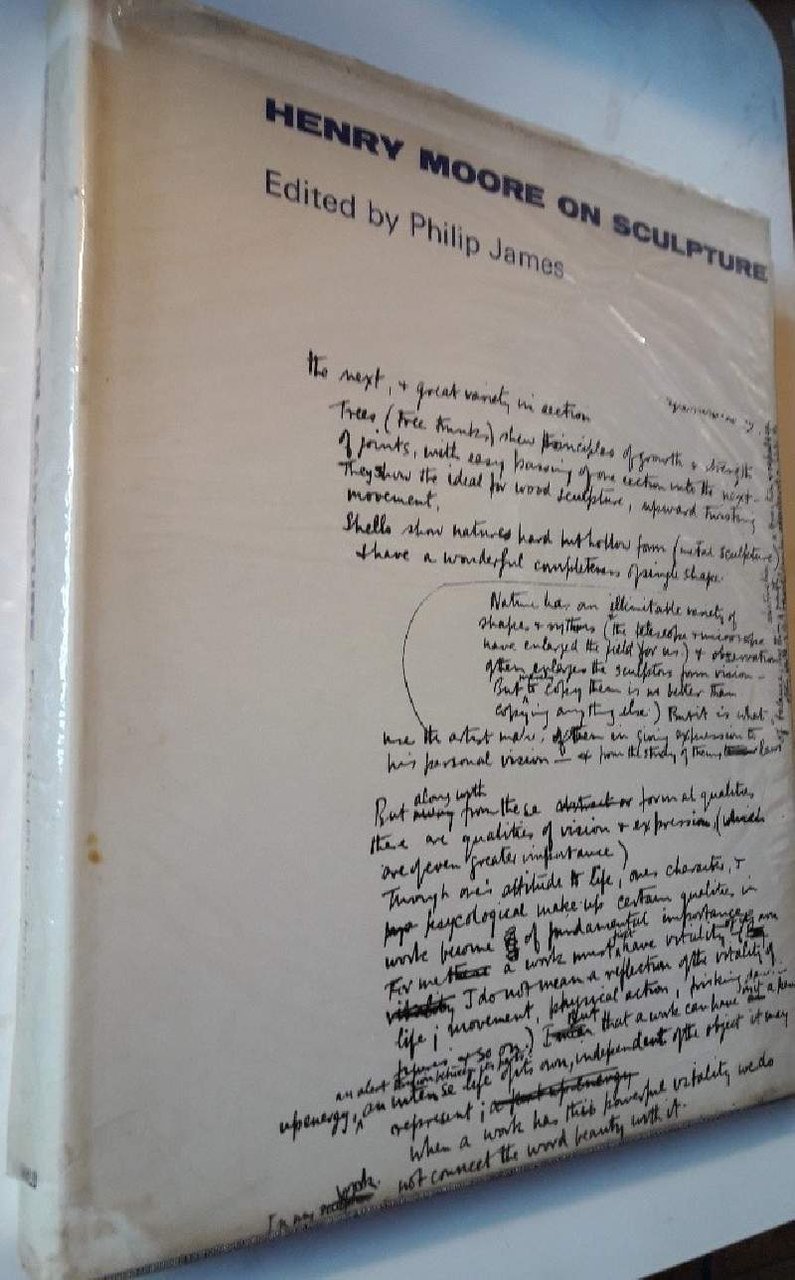 HENRY MOORE ON SCULPTURE
Edited by Philip James
the next, & great variety in section
Trees (tree trunks) show principles of growth & strength
of joints, with easy passing of one section into the next
They show the ideal for wood sculpture, upward twisting
movement.
Shells show natures hard but hollow form (metal sculpture
& have a wonderful completeness of single shape.
Nature has an illimitable variety of
shapes & rythms (the telescope & microscope
have enlarged the field for us.) & observation
often enlarges the sculptors form vision –
But to copy them is no better than
copying anything else.) But it is what
use the artist makes of them in giving expression to
his personal vision – & from the study of them laws
But along with away from these abstract or formal qualities
there are qualities of vision & expression, (which
are of even greater importance)
Through one's attitude to life, ones character, &
psycological make up certain qualities in
work become of fundamental importance
For me a work must have vitality
vitality I do not mean a reflection of the vitality of
life; movement, physical action, frisking
figures & so on.) I mean that a work can have
up energy, an intense life of its own, independent of the object it may
represent;
When a work has this powerful vitality we do
not connect the word beauty with it.
In my work